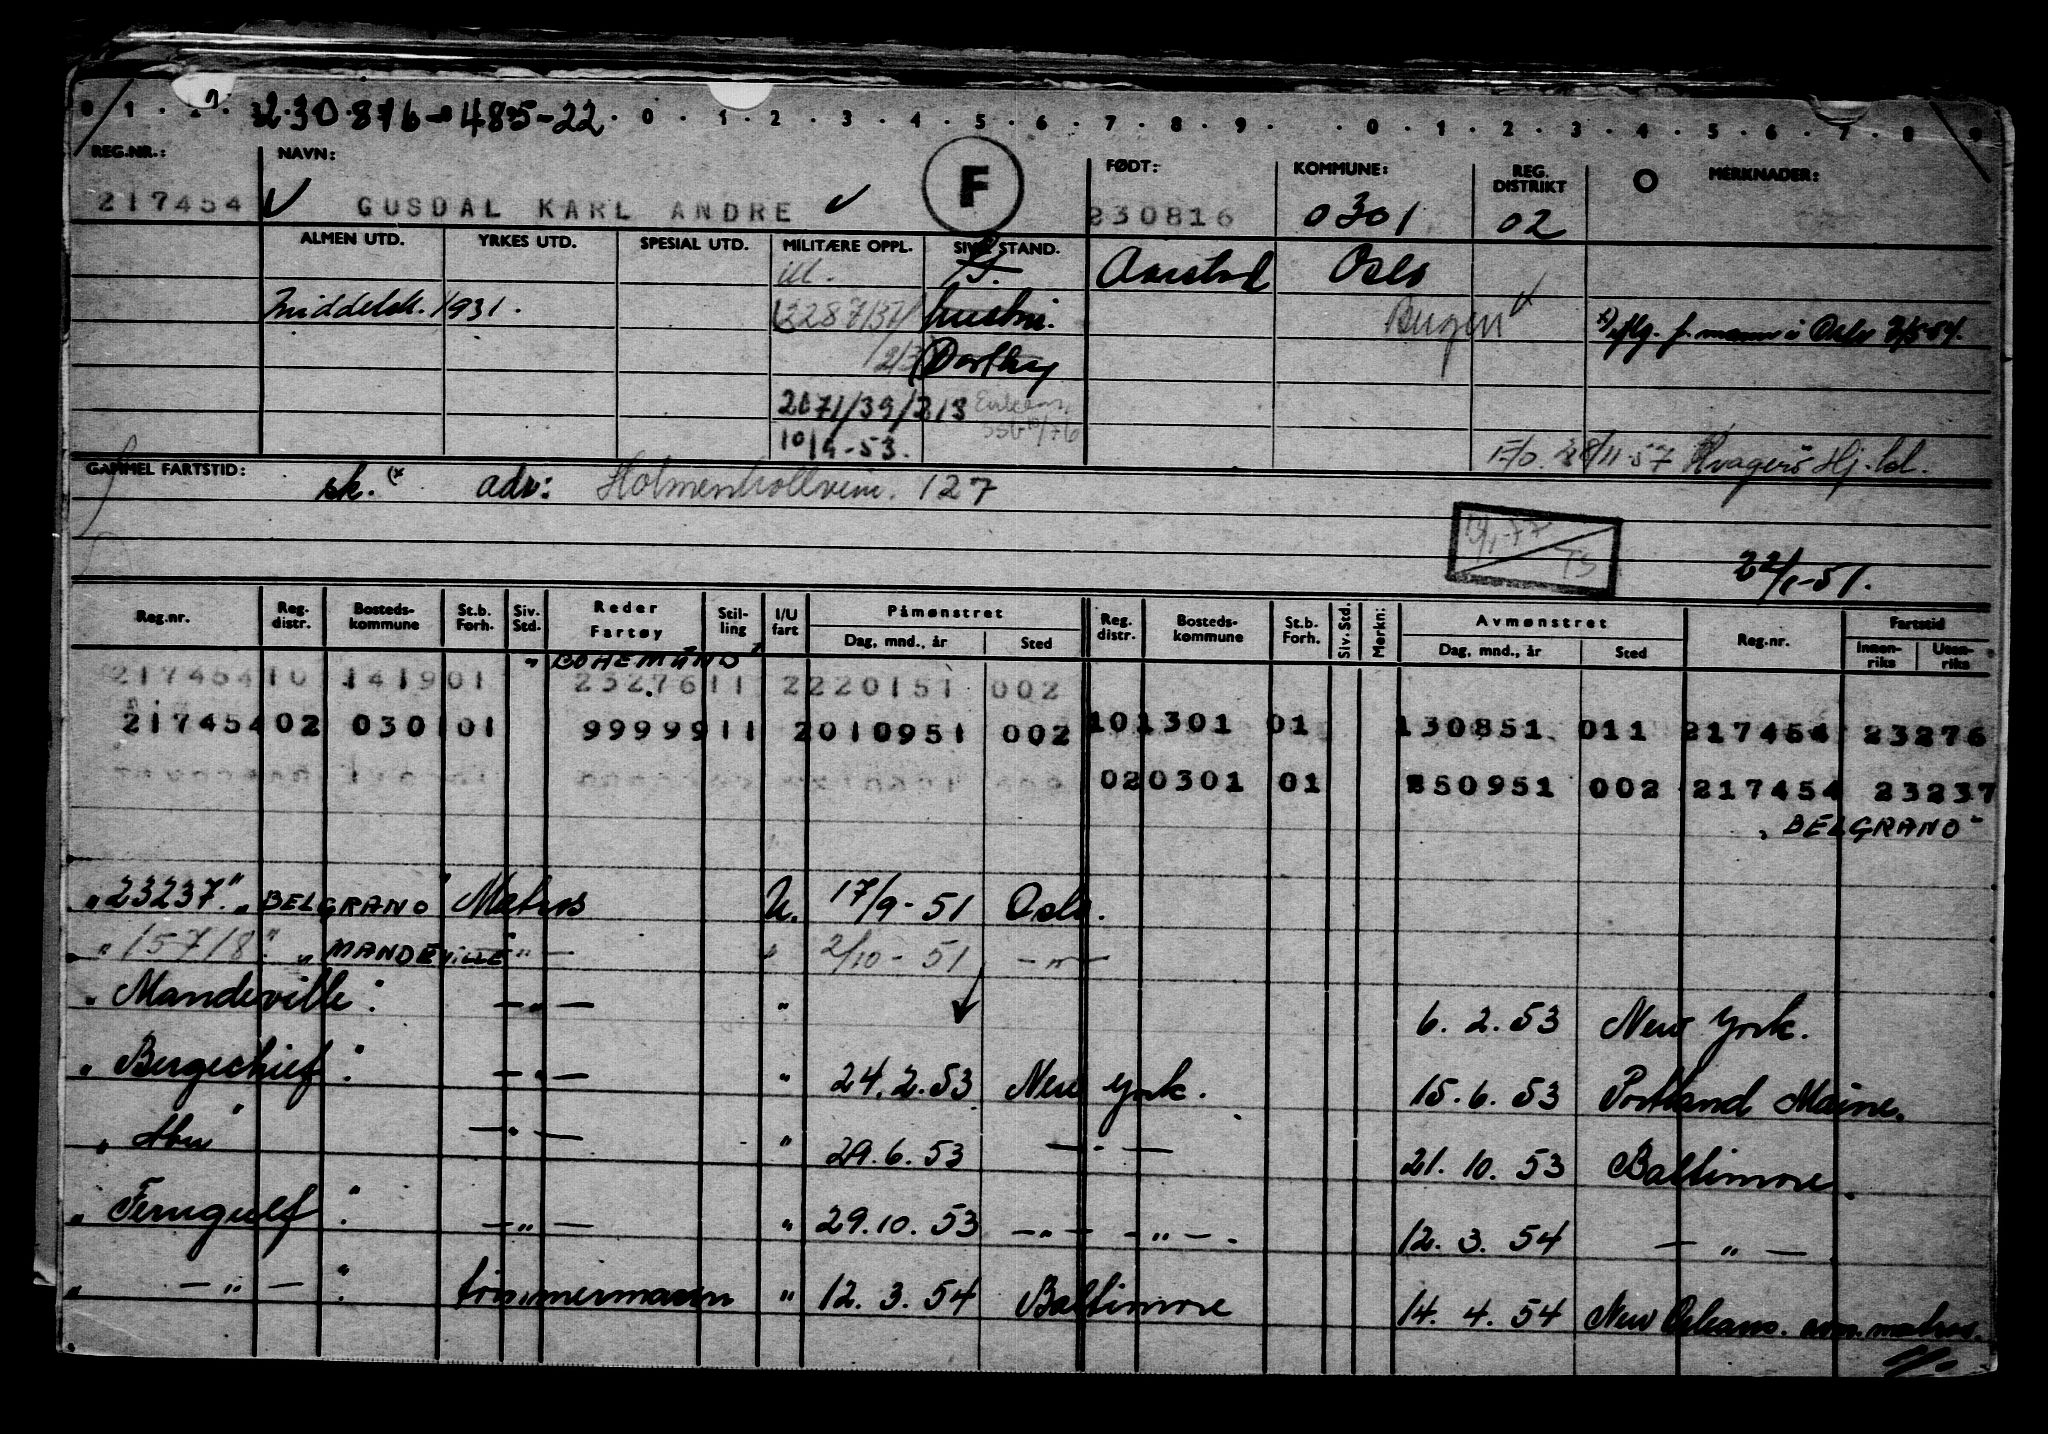 230876-485-22
0 1 0 1 2 3 4 5 6 7 8 9 0 1 2 3 4 5 6 7 8 9
REG.NR.: NAVN: F FØDT: KOMMUNE: REG. DISTRIKT MERKNADER:
217454 GUSDAL KARL ANDRE 230816 0301 02
ALMEN UTD. YRKES UTD. SPESIAL UTD. MILITÆRE OPPL. SIV. STAND.
ill. Oslo
Middelsk. 1931. hustru. Bergen
Dorthy
2071/39/213
10/9-53.
28/11-57
GAMMEL FARTSTID: sk. adr: Holmenkollveien. 127
22/1-51.
Reg.nr. Reg. distr. Bosteds-kommune St.b. Forh. Siv. Std. Reder Fartøy Stilling I/U fart Påmønstret Dag, mnd., år Sted Reg. distr. Bosteds-kommune St.b. Forh. Siv. Std. Merkn: Avmønstret Dag, mnd., år Sted Reg.nr. Fartstid Innenriks Utenriks
"BOHEMUND"
217454 10 1419 01 23276 11 2 220151 002
217454 02 0301 01 99999 11 2 010951 002 10 1301 01 130851 011 217454 23276
02 0301 01 250951 002 217454 23237
"BELGRANO"
"23237" "BELGRANO" Matros U. 17/9-51 Oslo.
"15718" "MANDEVILLE" — " — " 2/10-51 — " —
"Mandeville" — " — " 6.2.53 New York.
"Bergechief" — " — " 24.2.53 New York. 15.6.53 Portland Maine.
"Abu" — " — " 29.6.53 — " — 21.10.53 Baltimore.
"Ferngulf" — " — " 29.10.53 — " — — " — 12.3.54 — " —
" — " — " tömmermann " 12.3.54 Baltimore 14.4.54 New Orleans.